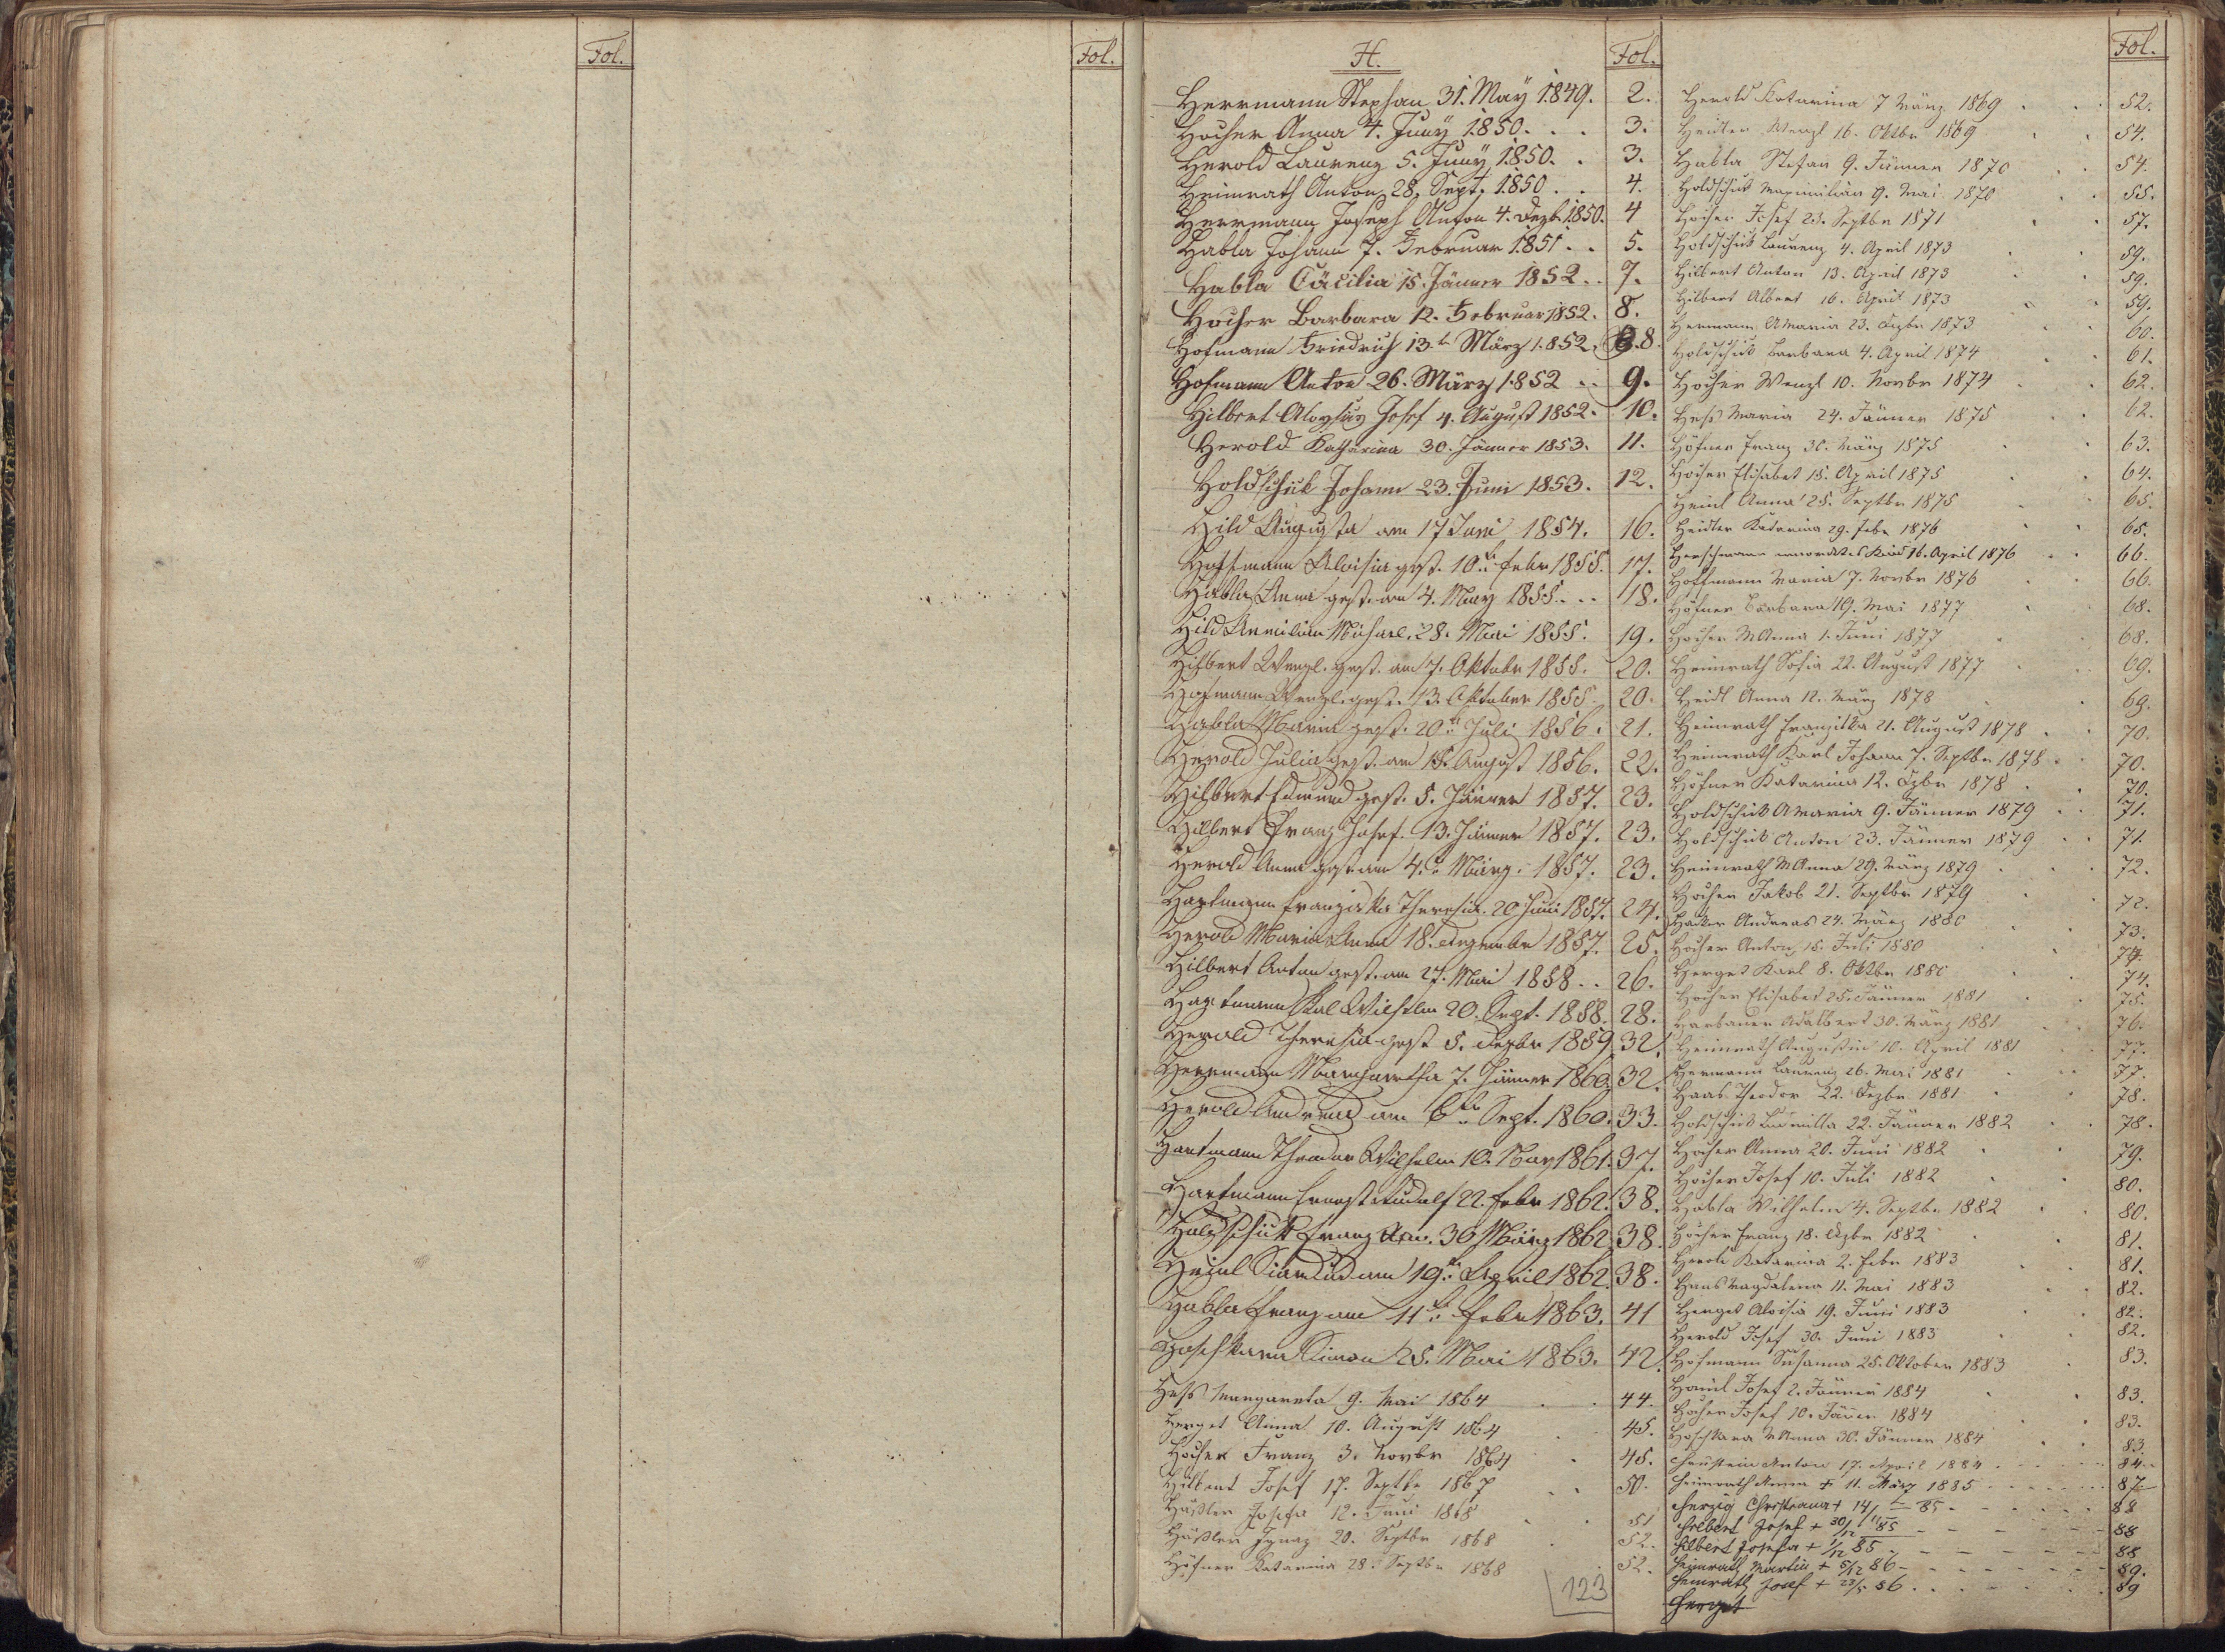 Fol.
Fol.
H.
Fol.
Herrmann Stephan 31. May 1849. 2.
Hocher Anna 4. Juny 1850. . . 3.
Herold Laurenz 5. Juny 1850. . 3.
Heinrath Anton 28. Sept. 1850 . . 4.
Herrmann Joseph Anton 4. Dezb. 1850. 4
Habla Johann 7. Februar 1851 . . 5.
Habla Cäcilia 15. Jänner 1852 . . 7.
Hocher Barbara 12. Februar 1852. 8.
Hofmann Friedrich 13. März 1852. 8.
Hofmann Anton 26. März 1852 . . 9.
Hilbert Aloysius Josef 4. August 1852. 10.
Herold Katharina 30. Jänner 1853. 11.
Holdschik Johann 23. Juni 1853. 12.
Hild Augusta am 17 Juni 1854. 16.
Hoffmann Aloisia gest. 10. Febr 1855. 17.
Habla Anna gest. am 4. May 1855. . . 18.
Hild Michael. 28. Mai 1855. 19.
Hilbert Wenzl. gest. am 7. Oktobr 1855. 20.
Hofmann Wenzl. gest. 13. Oktober 1855. 20.
Habla Maria gest. 20. Juli 1856. 21.
Herold Julia gest. am 15. August 1856. 22.
Hilbert Edmund gest. 5. Jänner 1857. 23.
Hilbert Franz Josef. 13. Jänner 1857. 23.
Herold Anna gest. am 4. März. 1857. 23.
Hartmann Franziska Theresia. 20 Juni 1857. 24.
Herold Maria Anna 18. Dezembr 1857. 25.
Hilbert Anton gest. am 27. Mai 1858 . . 26.
Hartmann Karl Wilhelm 20. Sept. 1858. 28.
Herold Theresia gest 5. Dezbr 1859. 32.
Herrmann Margaretha 7. Jänner 1860. 32.
Herold Andreas am 6. Sept. 1860. 33.
Hartmann Theodor Wilhelm 10. May 1861. 37.
Hartmann Ernest Rudolf 22. Febr 1862. 38.
Holdschik Franz 30 März 1862 38.
Heinl am 19. April 1862 38.
Habla Franz am 11. Febr 1863. 41
Hoschkara Simon 25. Mai 1863. 42.
Heß Margareta 9. Mai 1864 . . 44.
Herget Anna 10. August 1864 . 45.
Hocher Franz 3. Novbr 1864 . 45.
Hilbert Josef 17. Septbr 1867 . . 50.
Häußler Josefa 12. Juni 1868 . . 51
Häußler Ignaz 20. Septbr 1868 . 52.
Höfner Katarina 28. Septbr 1868 . 52.
123
Fol.
Herold Katarina 7 März 1869 . . 52.
Heidler Wenzl 16. Oktbr 1869 . . 54.
Habla Stefan 9. Jänner 1870 . . 54.
Holdschik Maximilian 9. Mai 1870 . . 55.
Hocher Josef 23. Septbr 1871 . . 57.
Holdschik Laurenz 4. April 1873 . . 59.
Hilbert Anton 13. April 1873 . . 59.
Hilbert Albert 16. April 1873 . . 59.
Hermann AMaria 23. Dezbr 1873 . . 60.
Holdschik Barbara 4. April 1874 . . 61.
Hocher Wenzl 10. Novbr 1874 . . 62.
Heß Maria 24. Jänner 1875 . . 62.
Höfner Franz 30. März 1875 . . 63.
Hocher Elisabet 15. April 1875 . . 64.
Heinl Anna 25. Septbr 1875 . . 65.
Heidler Katarina 29. Febr 1876 . . 65.
Herschmann Kind 16. April 1876 . . 66.
Hoffmann Maria 7. Novbr 1876 . . 66.
Höfner Barbara 19. Mai 1877 . . 68.
Hocher MAnna 1. Juni 1877 . . 68.
Heinrath Sofia 22. August 1877 . . 69.
Heidl Anna 12. März 1878 . . 69.
Heinrath Franziska 21. August 1878 . . 70.
Heinrath Karl Johann 7. Septbr 1878 . . 70.
Höfner Katarina 12. Dzbr 1878 . . 70.
Holdschik AMaria 9. Jänner 1879 . . 71.
Holdschik Anton 23. Jänner 1879 . . 71.
Heinrath MAnna 29. März 1879 . . 72.
Hocher Jakob 21. Septbr 1879 . . 72.
Andreas 24. März 1880 . . 73.
Hocher Anton, 15. Juli 1880 . . 74.
Herget Karl 8. Oktbr 1880 . . 74.
Hocher Elisabet 25. Jänner 1881 . . 75.
Harbauer Adalbert 30. März 1881 . . 76.
Heinrath Augustin 10. April 1881 . . 77.
Hermann Laurenz 26. Mai 1881 . . 77.
Haas Theodor 22. Dezbr 1881 . . 78.
Holdschik Ludmilla 22. Jänner 1882 . . 78.
Hocher Anna 20. Juni 1882 . . 79.
Hocher Josef 10. Juli 1882 . . 80.
Habla Wilhelm 4. Septbr 1882 . . 80.
Hocher Franz 18. Dzbr 1882 . . 81.
Herold Katarina 2. Febr 1883 . . 81.
Magdalena 11. Mai 1883 . . 82.
Herget Aloisia 19. Juni 1883 . . 82.
Herold Josef 30. Juni 1883 . . 82.
Hofmann Susanna 25. Oktober 1883 . 83.
Josef 2. Jänner 1884 . . 83.
Hocher Josef 10. Jäner 1884 . . 83.
Hoschkara MAnna 30. Jänner 1884 . . 83.
Anton 17. April 1884 . . . . 84.
Heinrath + 11. März 1885 . . . . 87
Herzig Christiana + 14/11 85 . . . . 88
Hilbert Josef + 30/11 85 - - - - 88
Hilbert Josefa + 1/12 85 - - - - 88
Heinrath Martin + 5/12 86 - - - - 89.
Heinrath Josef + 23/5 86 . . . . 89
Herget